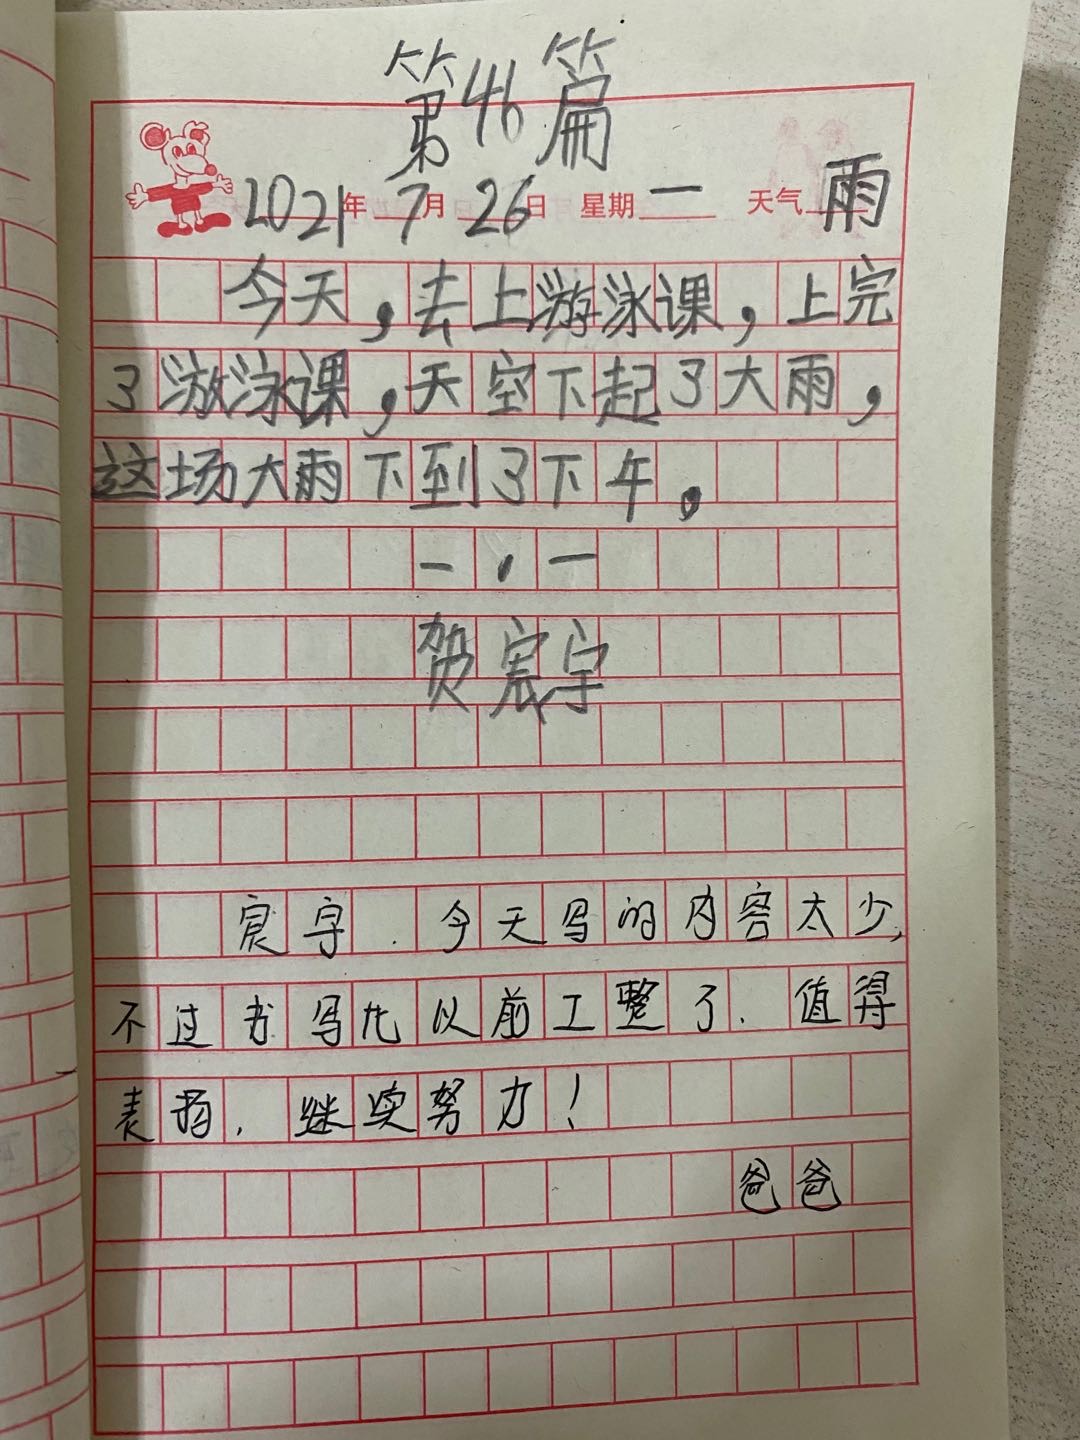 第46篇
2021年7月26日 星期一 天气雨
今天，去上游泳课，上完
了游泳课，天空下起了大雨，
这场大雨下到了下午。
一，一
贺宸宇
宸宇，今天写的内容太少，
不过书写比以前工整了，值得
表扬，继续努力！
爸爸